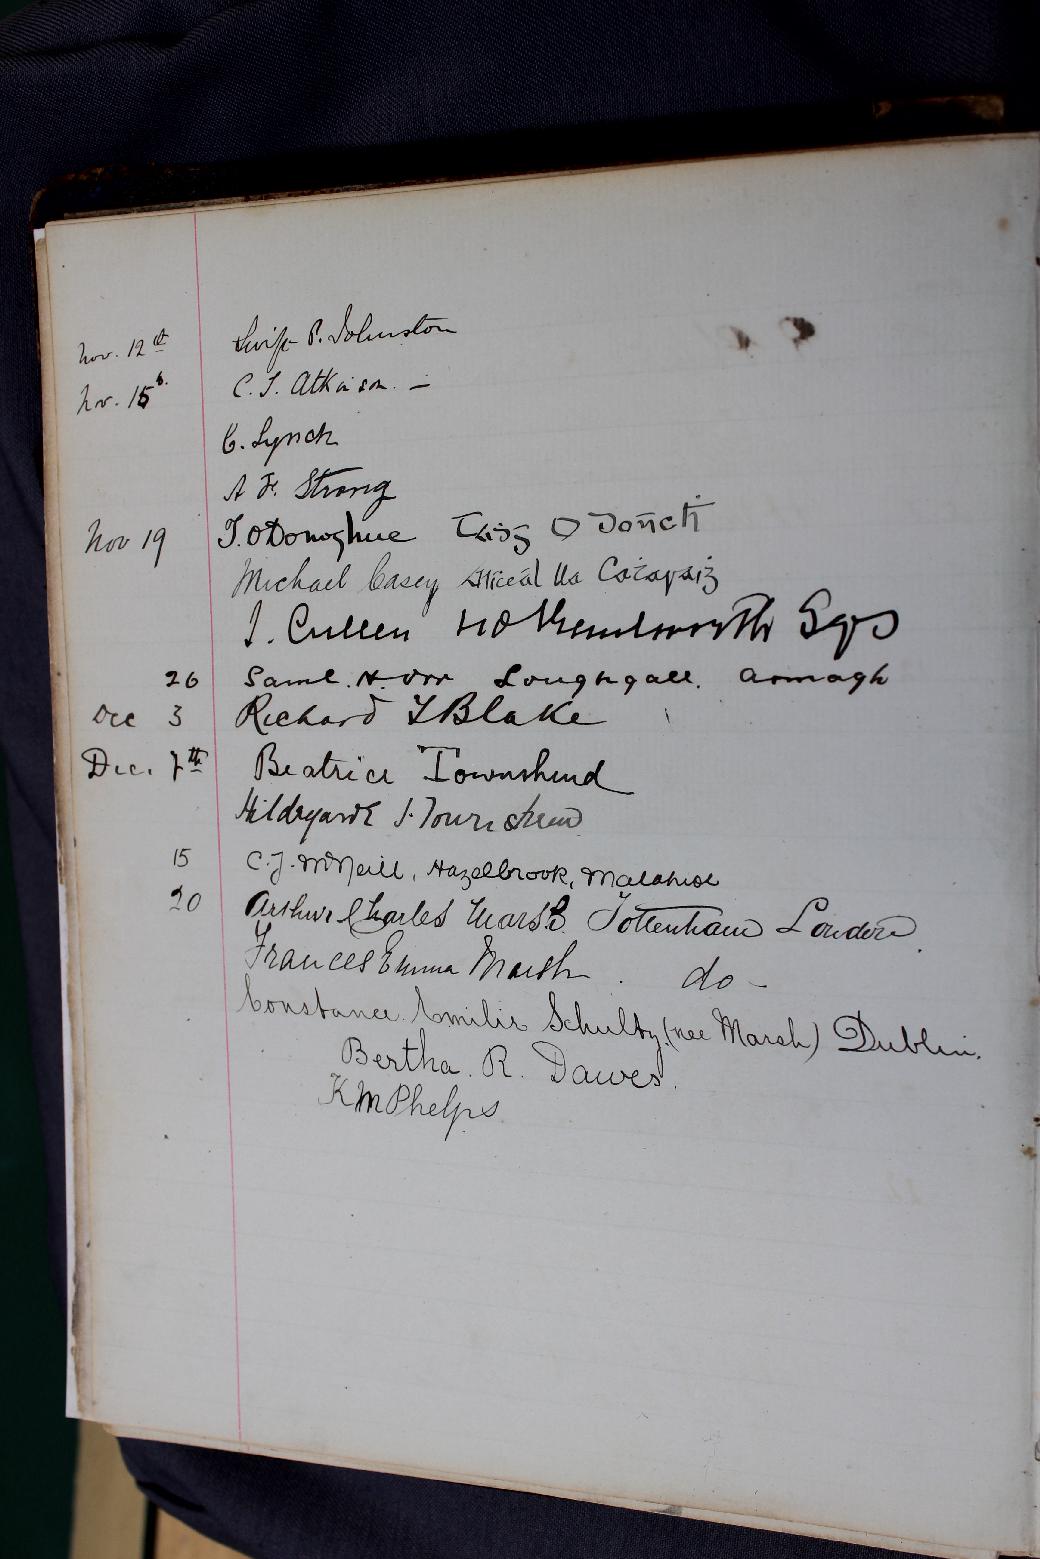 Nov. 12th Swift P. Johnston
Nov. 15th C. T. Atkinson. —
C. Lynch
A F. Strong
Nov 19 T. O'Donoghue Taḋg O Donċa
Michael Casey Míceál Ua Caṫasaiġ
J. Cullen Sqr
26 Saml. H. Orr Loughgall. Armagh
Dec 3 Richard F Blake
Dec. 7th Beatrice Townshend
Hildegarde Townshend
15 C. J. McNeill, Hazelbrook, Malahide
20 Arthur Charles Marsh Tottenham London
Frances Emma Marsh. do -
Constance Emilie Schultz, (nee Marsh) Dublin.
Bertha. R. Dawes.
K M Phelps